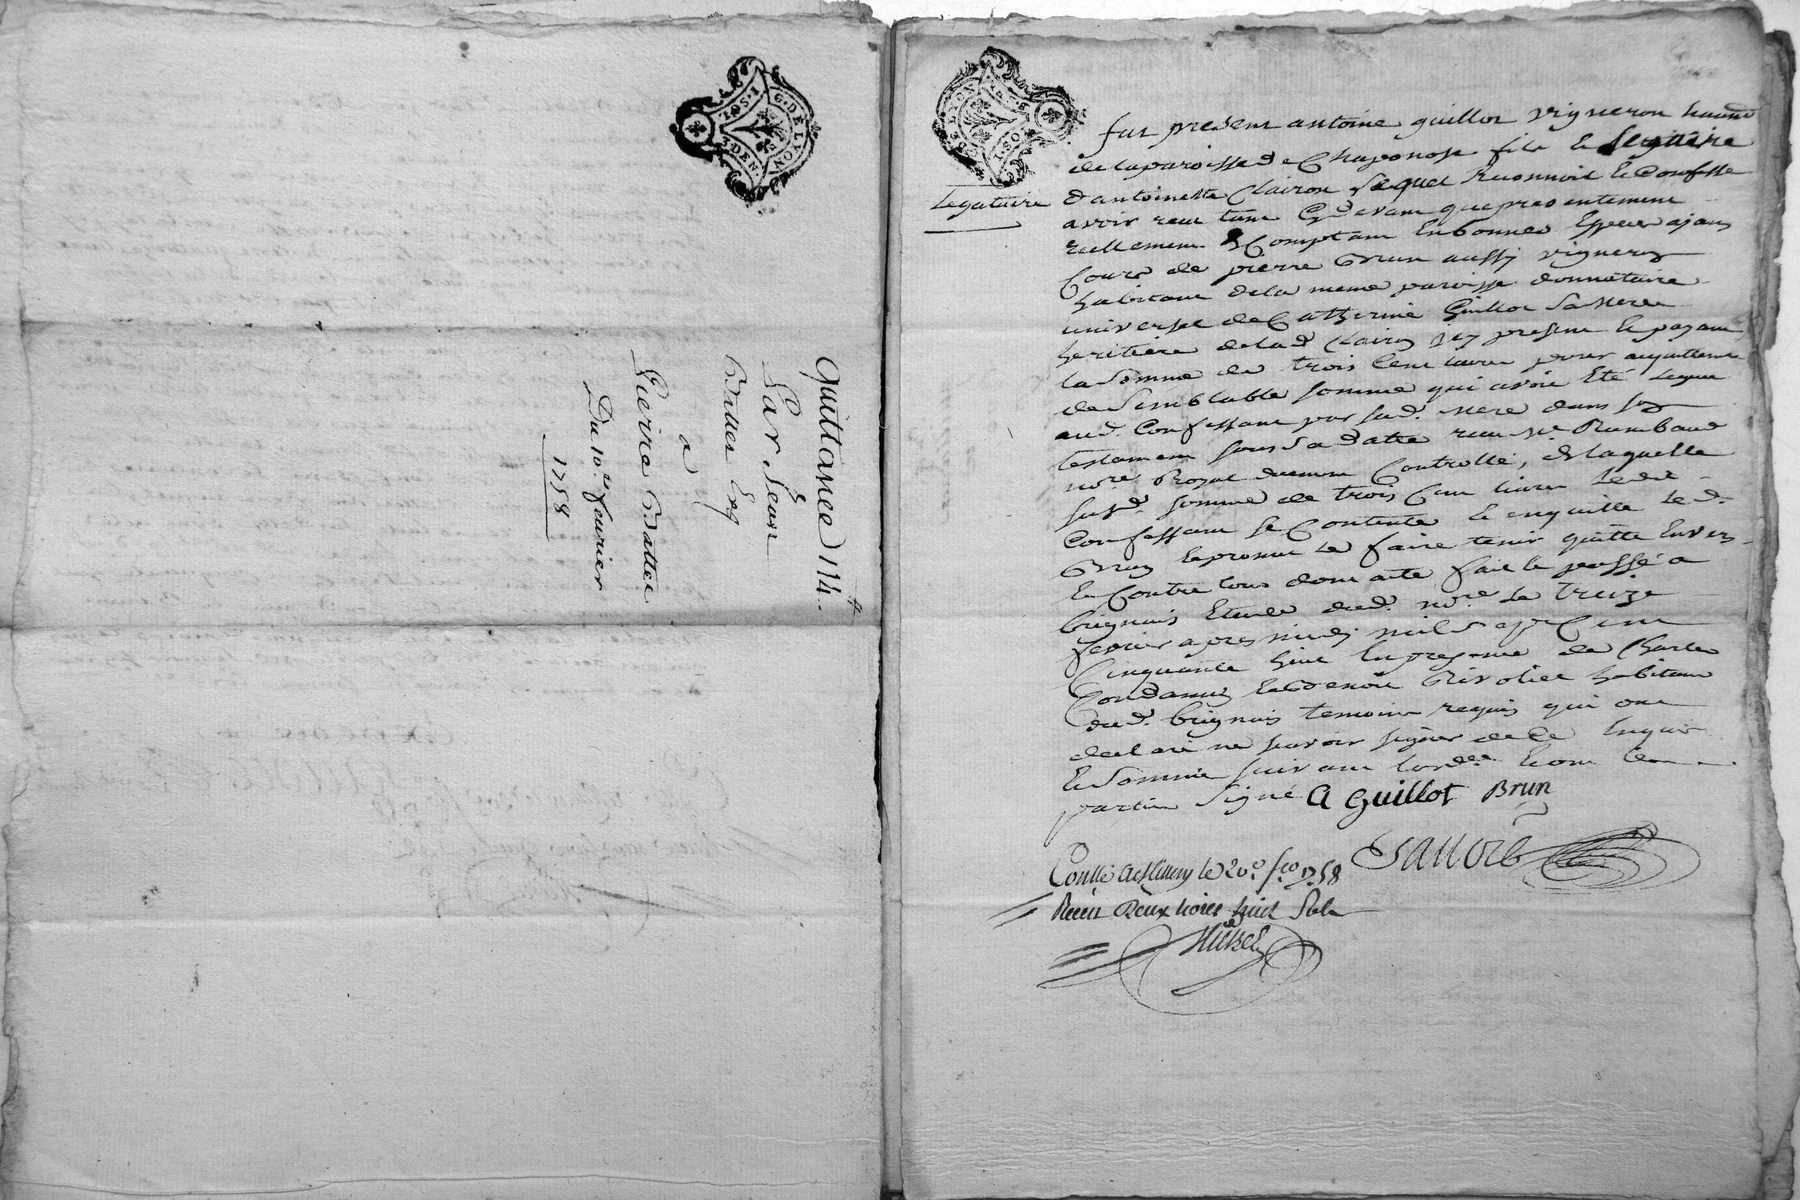 G. DE LYON
1 SOL
3 DEN
Quittance 114.
Par Jean
Battee
a
Pierre Battee
Du 10e. feurier
1758
fut present antoine guillot vigneron habitt
de la paroisse de Chaponost fils Et legataire
Legataire
d'antoinette Clairon lequel Reconnoit Et Confesse
avoir recu tant Cydevant que presentement
reellement & Comptant En bonnes Especes ajant
Cours de pierre Brun aussy vigneron
habitant de la meme paroisse donnataire
universel de Catherine Guillot sa mere
heritiere de lad. Clairon icy present Et payant
la somme de trois Cent livres pour acquittement
de semblable somme qui avoit Eté leguée
aud. Confessant par sad. mere dans son
testament sous sa datte recu Me. Rambaud
nore. Royal duement Controllé, de laquelle
susd. somme de trois Cent livres ledit
Confessant se Contente Et en quitte led.
Brun Et promet le faire tenir quitte Envers
Et Contre tous dont acte fait Et passé a
brignais Etude dud. nore. le treize
fevrier apres midi mil sept Cent
Cinquante huit En presence de Charles
Condamin Et Benoit Rivolier habitans
dud. brignais temoins requis qui ont
declaré ne scavoir signer de ce Enquis
Et Sommés suivant lordce. Et ont les
parties signé A Guillot Brun
Conllé a St Genis le 20e. feo. 1758
Recu Deux livres huit Sols